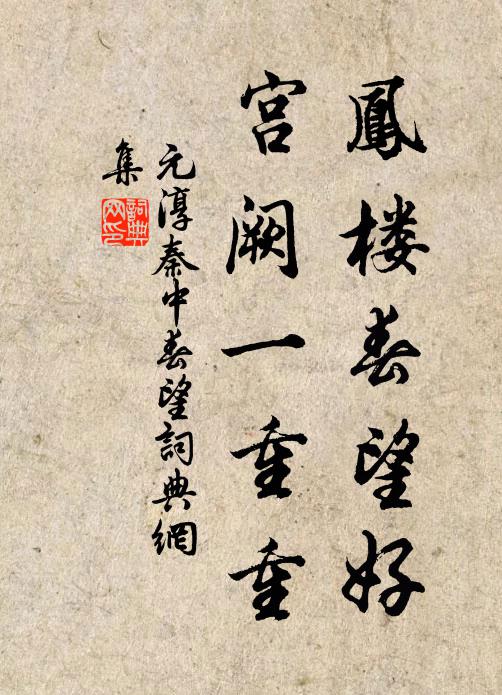 鳳楼春望好
宮阙一重重
元淳秦中春望詞典網
集
詞典
网印